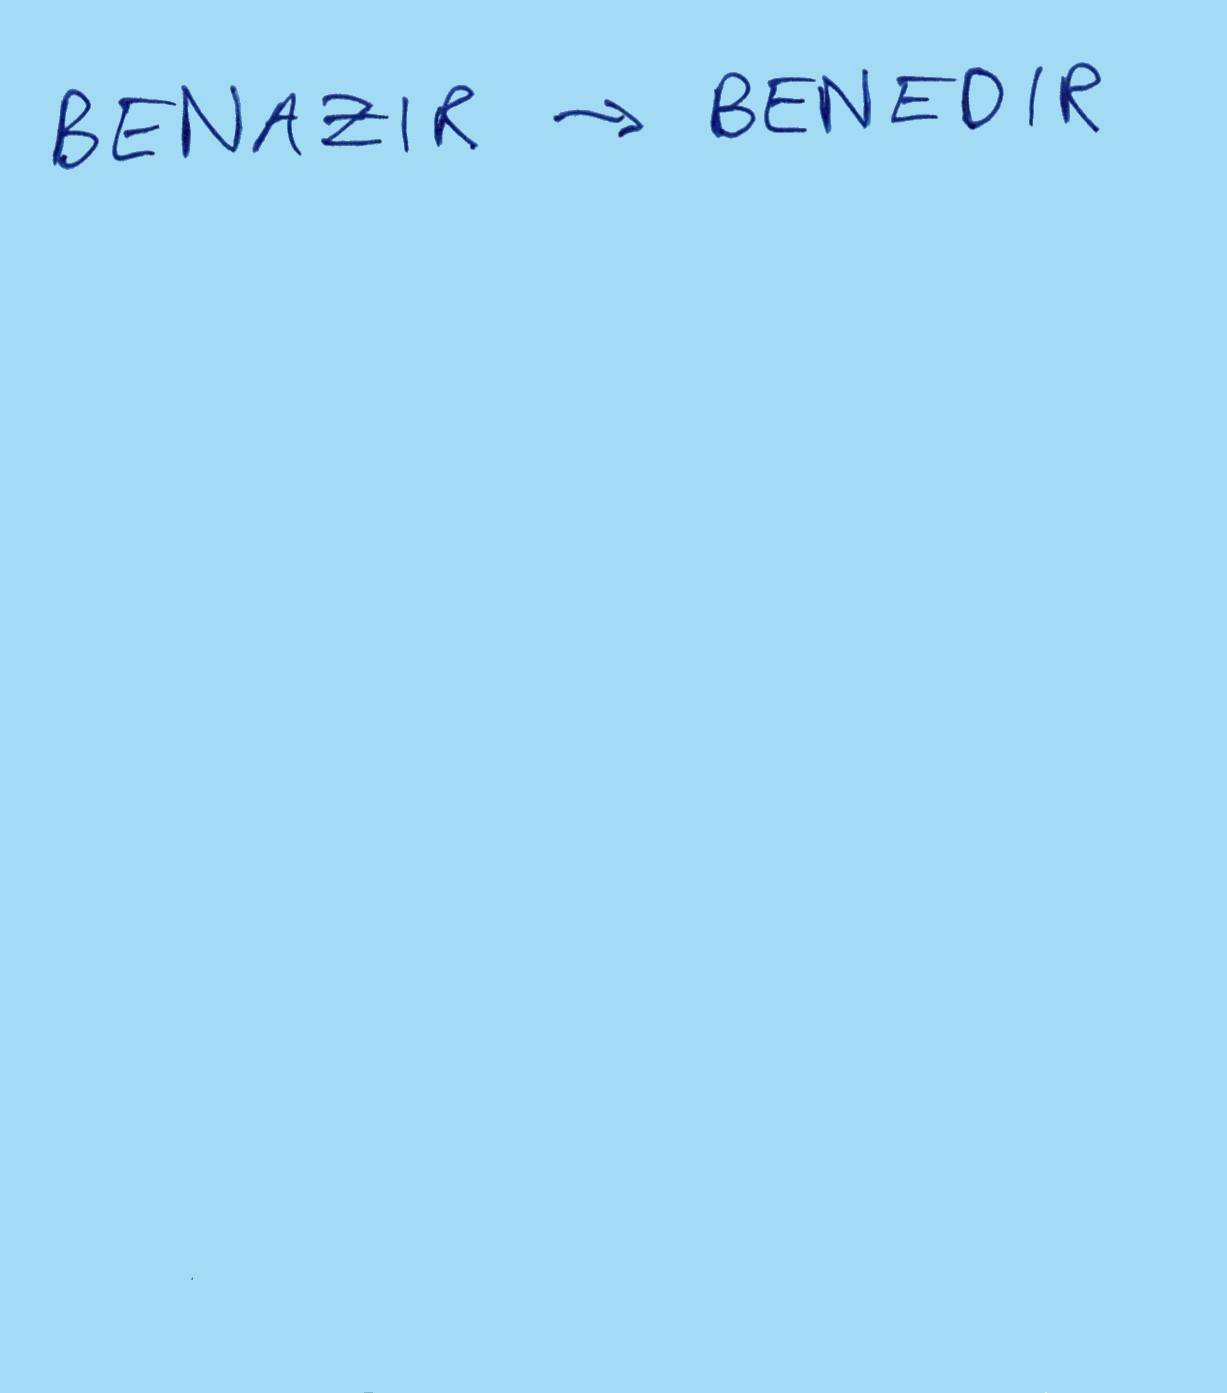 BENAZIR → BENEDIR